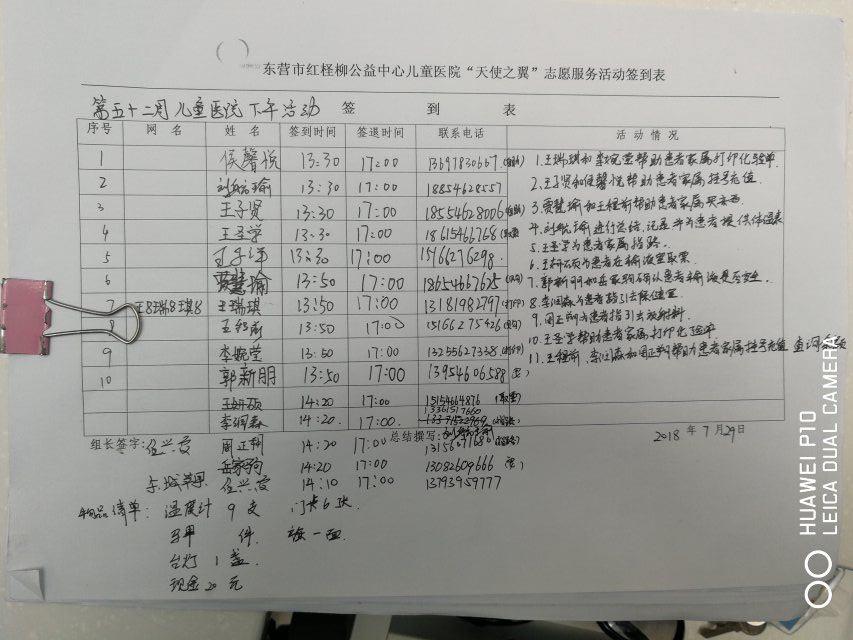 东营市红柽柳公益中心儿童医院“天使之翼”志愿服务活动签到表
第五十二周儿童医院下午活动 签 到 表
序号 网 名 姓 名 签到时间 签退时间 联系电话 活 动 情 况
1 侯馨悦 13:30 17:00 13697830667
2 瑜 13:30 17:00 18854628557
3 王子贤 13:30 17:00 18554628006
4 王圣学 13:30 17:00 18615466768
5 13:30 17:00 15766276298
6 贾慧瑜 13:50 17:00 18654667625
7 王8瑞8琪8 王瑞琪 13:50 17:00 13181982797
8 13:50 17:00 15166275426
9 李婉莹 13:50 17:00 13255627338
10 郭新朋 13:50 17:00 13954606588
王妍硕 14:20 17:00 15154664876
李润森 14:20 17:00 13361517660
组长签字: 周正翔 14:20 17:00 总结撰写:
14:20 17:00 13082609666
14:10 17:00 13793959777
1.王瑞琪和李婉莹帮助患者家属打印化验单.
2.王子贤和侯馨悦帮助患者家属挂号充值.
3.贾慧瑜和王程前帮助患者家属买东西
4.进行总结,记录并为患者提供体温表
5.王圣学为患者家属指路.
6.王妍硕为患者在输液室取药.
7.确认患者输液是否安全.
8.李润森为患者指引去保健室.
9.周正翔为患者指引去放射科.
10.王圣学帮助患者家属打印化验单
11.王程前、李润森和周正翔帮助患者家属挂号充值
2018 年 7 月 29 日
物品清单: 温度计 9 支 门卡6张
马甲 件. 旗一面.
台灯 1 盏.
现金 20 元
HUAWEI P10
LEICA DUAL CAMERA